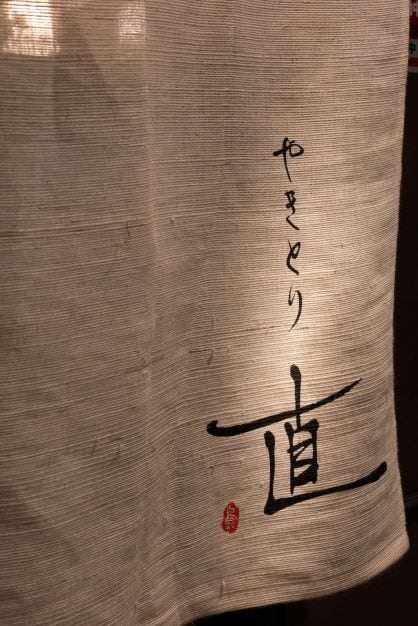 やきとり
直